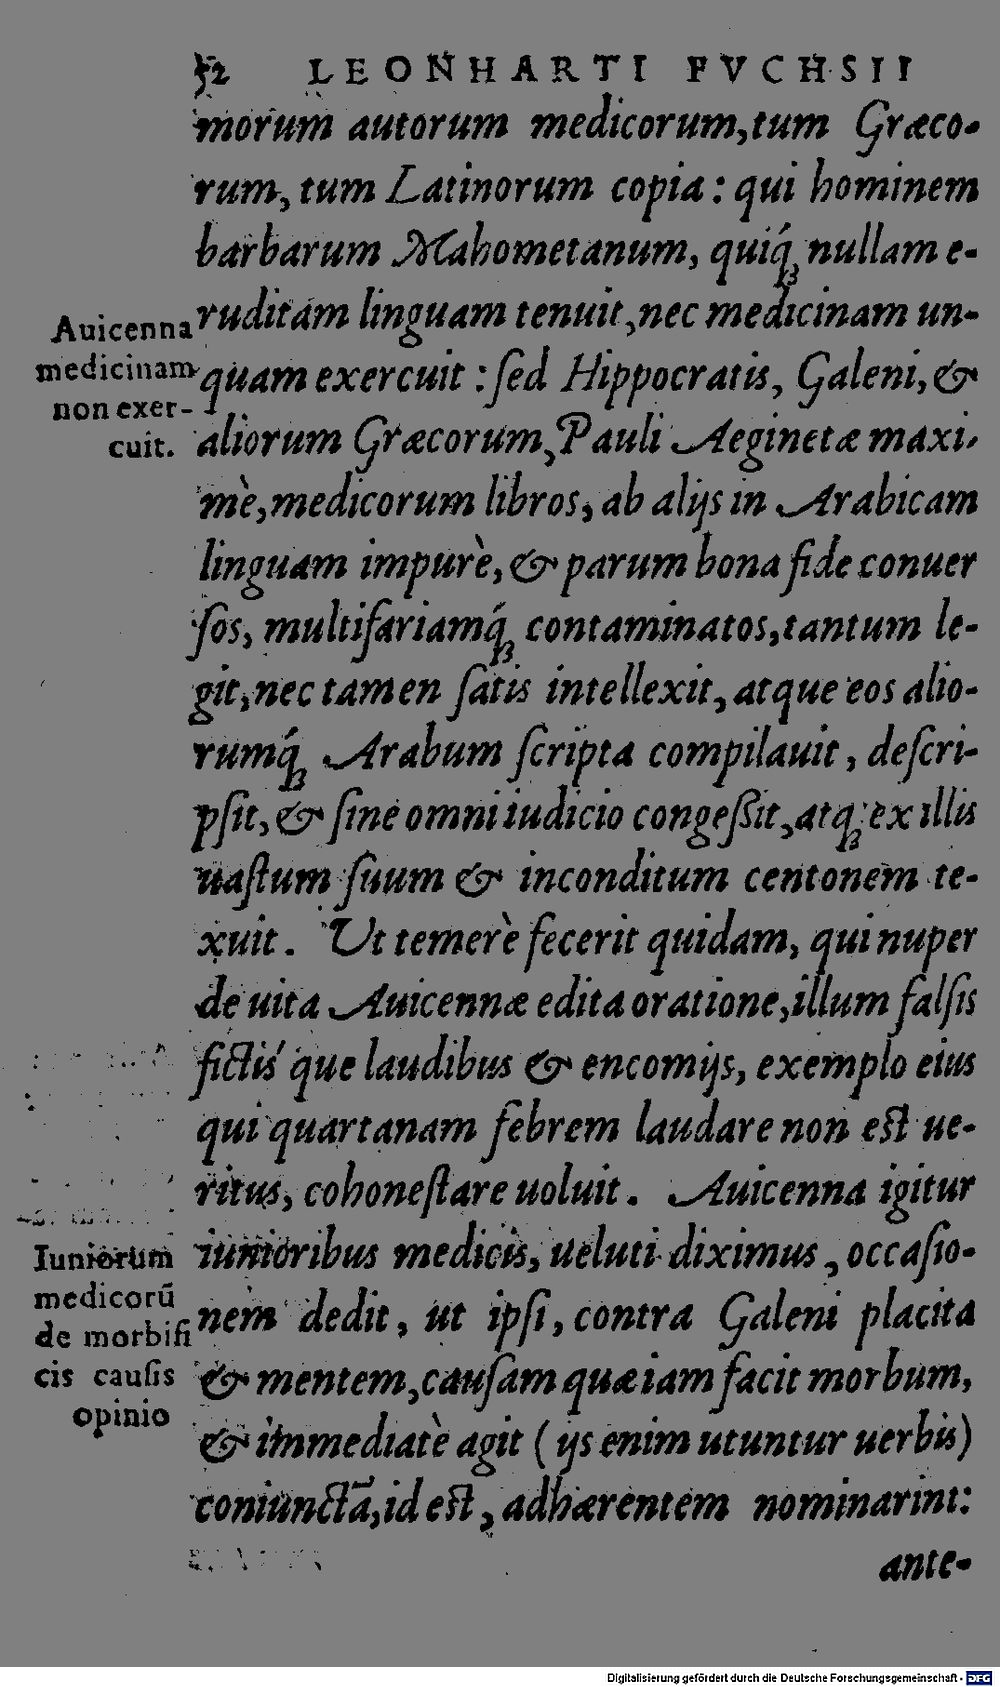 52 LEONHARTI FVCHSII
morum autorum medicorum, tum Græco-
rum, tum Latinorum copia: qui hominem
barbarum Mahometanum, quiq́ꝫ nullam e-
ruditam linguam tenuit, nec medicinam un-
quam exercuit: ſed Hippocratis, Galeni, &
aliorum Græcorum, Pauli Aeginetæ maxi-
mè, medicorum libros, ab alijs in Arabicam
linguam impurè, & parum bona fide conuer
ſos, multifariamq́ꝫ contaminatos, tantum le-
git, nec tamen ſatis intellexit, atque eos alio-
rumq́ꝫ Arabum ſcripta compilauit, deſcri-
pſit, & ſine omni iudicio congeſſit, atqꝫ ex illis
uaſtum ſuum & inconditum centonem te-
xuit. Ut temerè fecerit quidam, qui nuper
de uita Auicennæ edita oratione, illum falſis
fictis´que laudibus & encomijs, exemplo eius
qui quartanam febrem laudare non eſt ue-
ritus, cohoneſtare uoluit. Auicenna igitur
iunioribus medicis, ueluti diximus, occaſio-
nem dedit, ut ipſi, contra Galeni placita
& mentem, cauſam quæ iam facit morbum,
& immediatè agit (ijs enim utuntur uerbis)
coniunctā, id eſt, adhærentem nominarint:
ante-
Auicenna
medicinam
non exer-
cuit.
Iuniorum
medicorū
de morbifi
cis cauſis
opinio
Digitalisierung gefördert durch die Deutsche Forschungsgemeinschaft - DFG